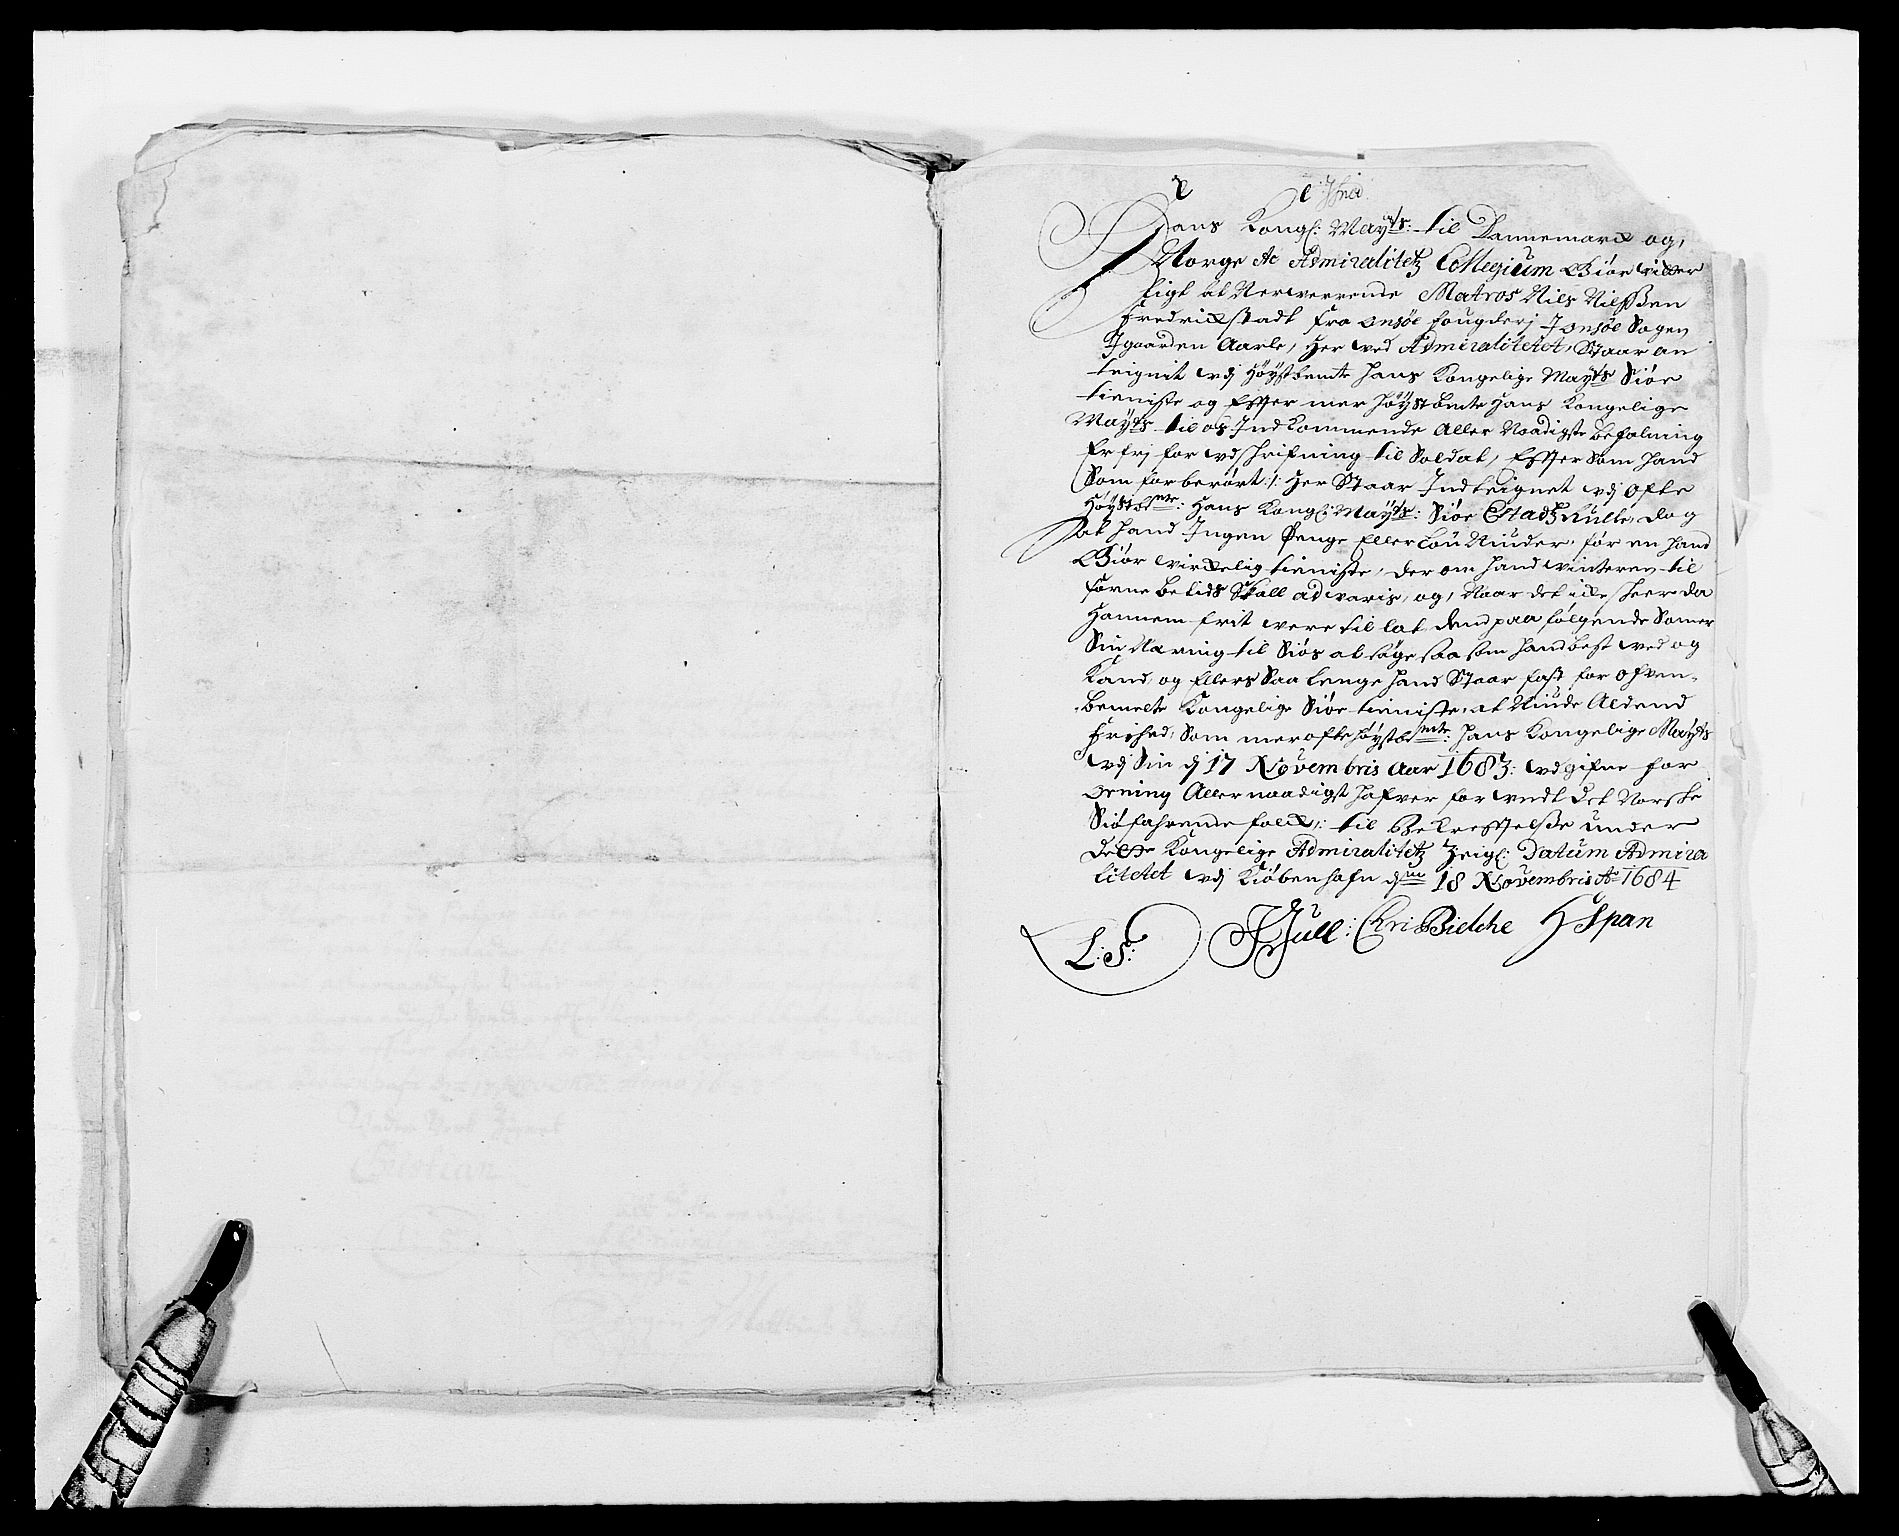 Hans Kongl: Mayts: til Dannemarck og,
Norge &c Admiralitetz Collegium Giøre vitter
ligt at Nerwerrende Matros Niels Nilsßen
Fredrickstadt fra onsøe fougderj J onsøe Sogen
Jgaarden Aarle, Her wed Admiralitetet, Staar an
teignit udj Høystbemte Hans Kongelige Mayts Siøe
tieniste og Effter mer høystbemte Hans Kongelige
Mayts til os Indkommende Aller Naadigste befalning
Er frj for udschrifning til Soldat, Effter som hand
Som forberørt :/: Her Staar Indteignet udj ofte
Høystbemte: Hans Kongl: Mayts: Siøe Etadtz Rulle, dog
at hand Ingen Penge Eller Løn Niuder, før en hand
Giør wirckelig tieniste, der om hand winteren til
forne betids Skall advaris, og, Naar det icke scheer da
Hannem frit were til lat dend paa følgende Somer
Sin Næring til Siøs at søge saa som hand best wed og
Kand, og Ellers Saa lenge hand Staar fast for ofven-
bemelte Kongelige Siøe tieniste, at Niude Aldend
Frihed, Som merofte høystbemte: Hans Kongelige Mayts
udj Sin dj 17 Novembris Aar 1683: udgifne for
ordning Allernaadigst hafver forundt det Norske
Siøfahrende folck,: til Bekrefftelße under
dette Kongelige Admiralitetz Zeigl: Datum Admira
litetet udj Kiøbenhafn den 18 Novembris Ao 1684
L: S: Jull: Chri Bielche H Span